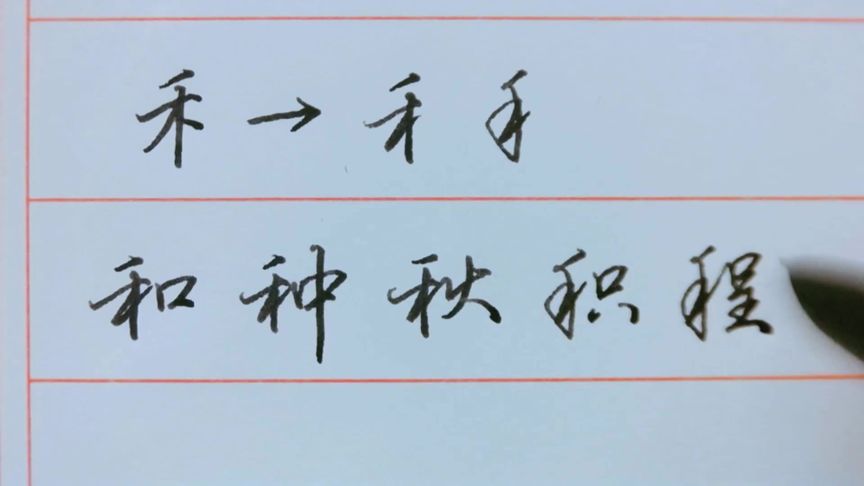 禾→禾禾
和种秋积程